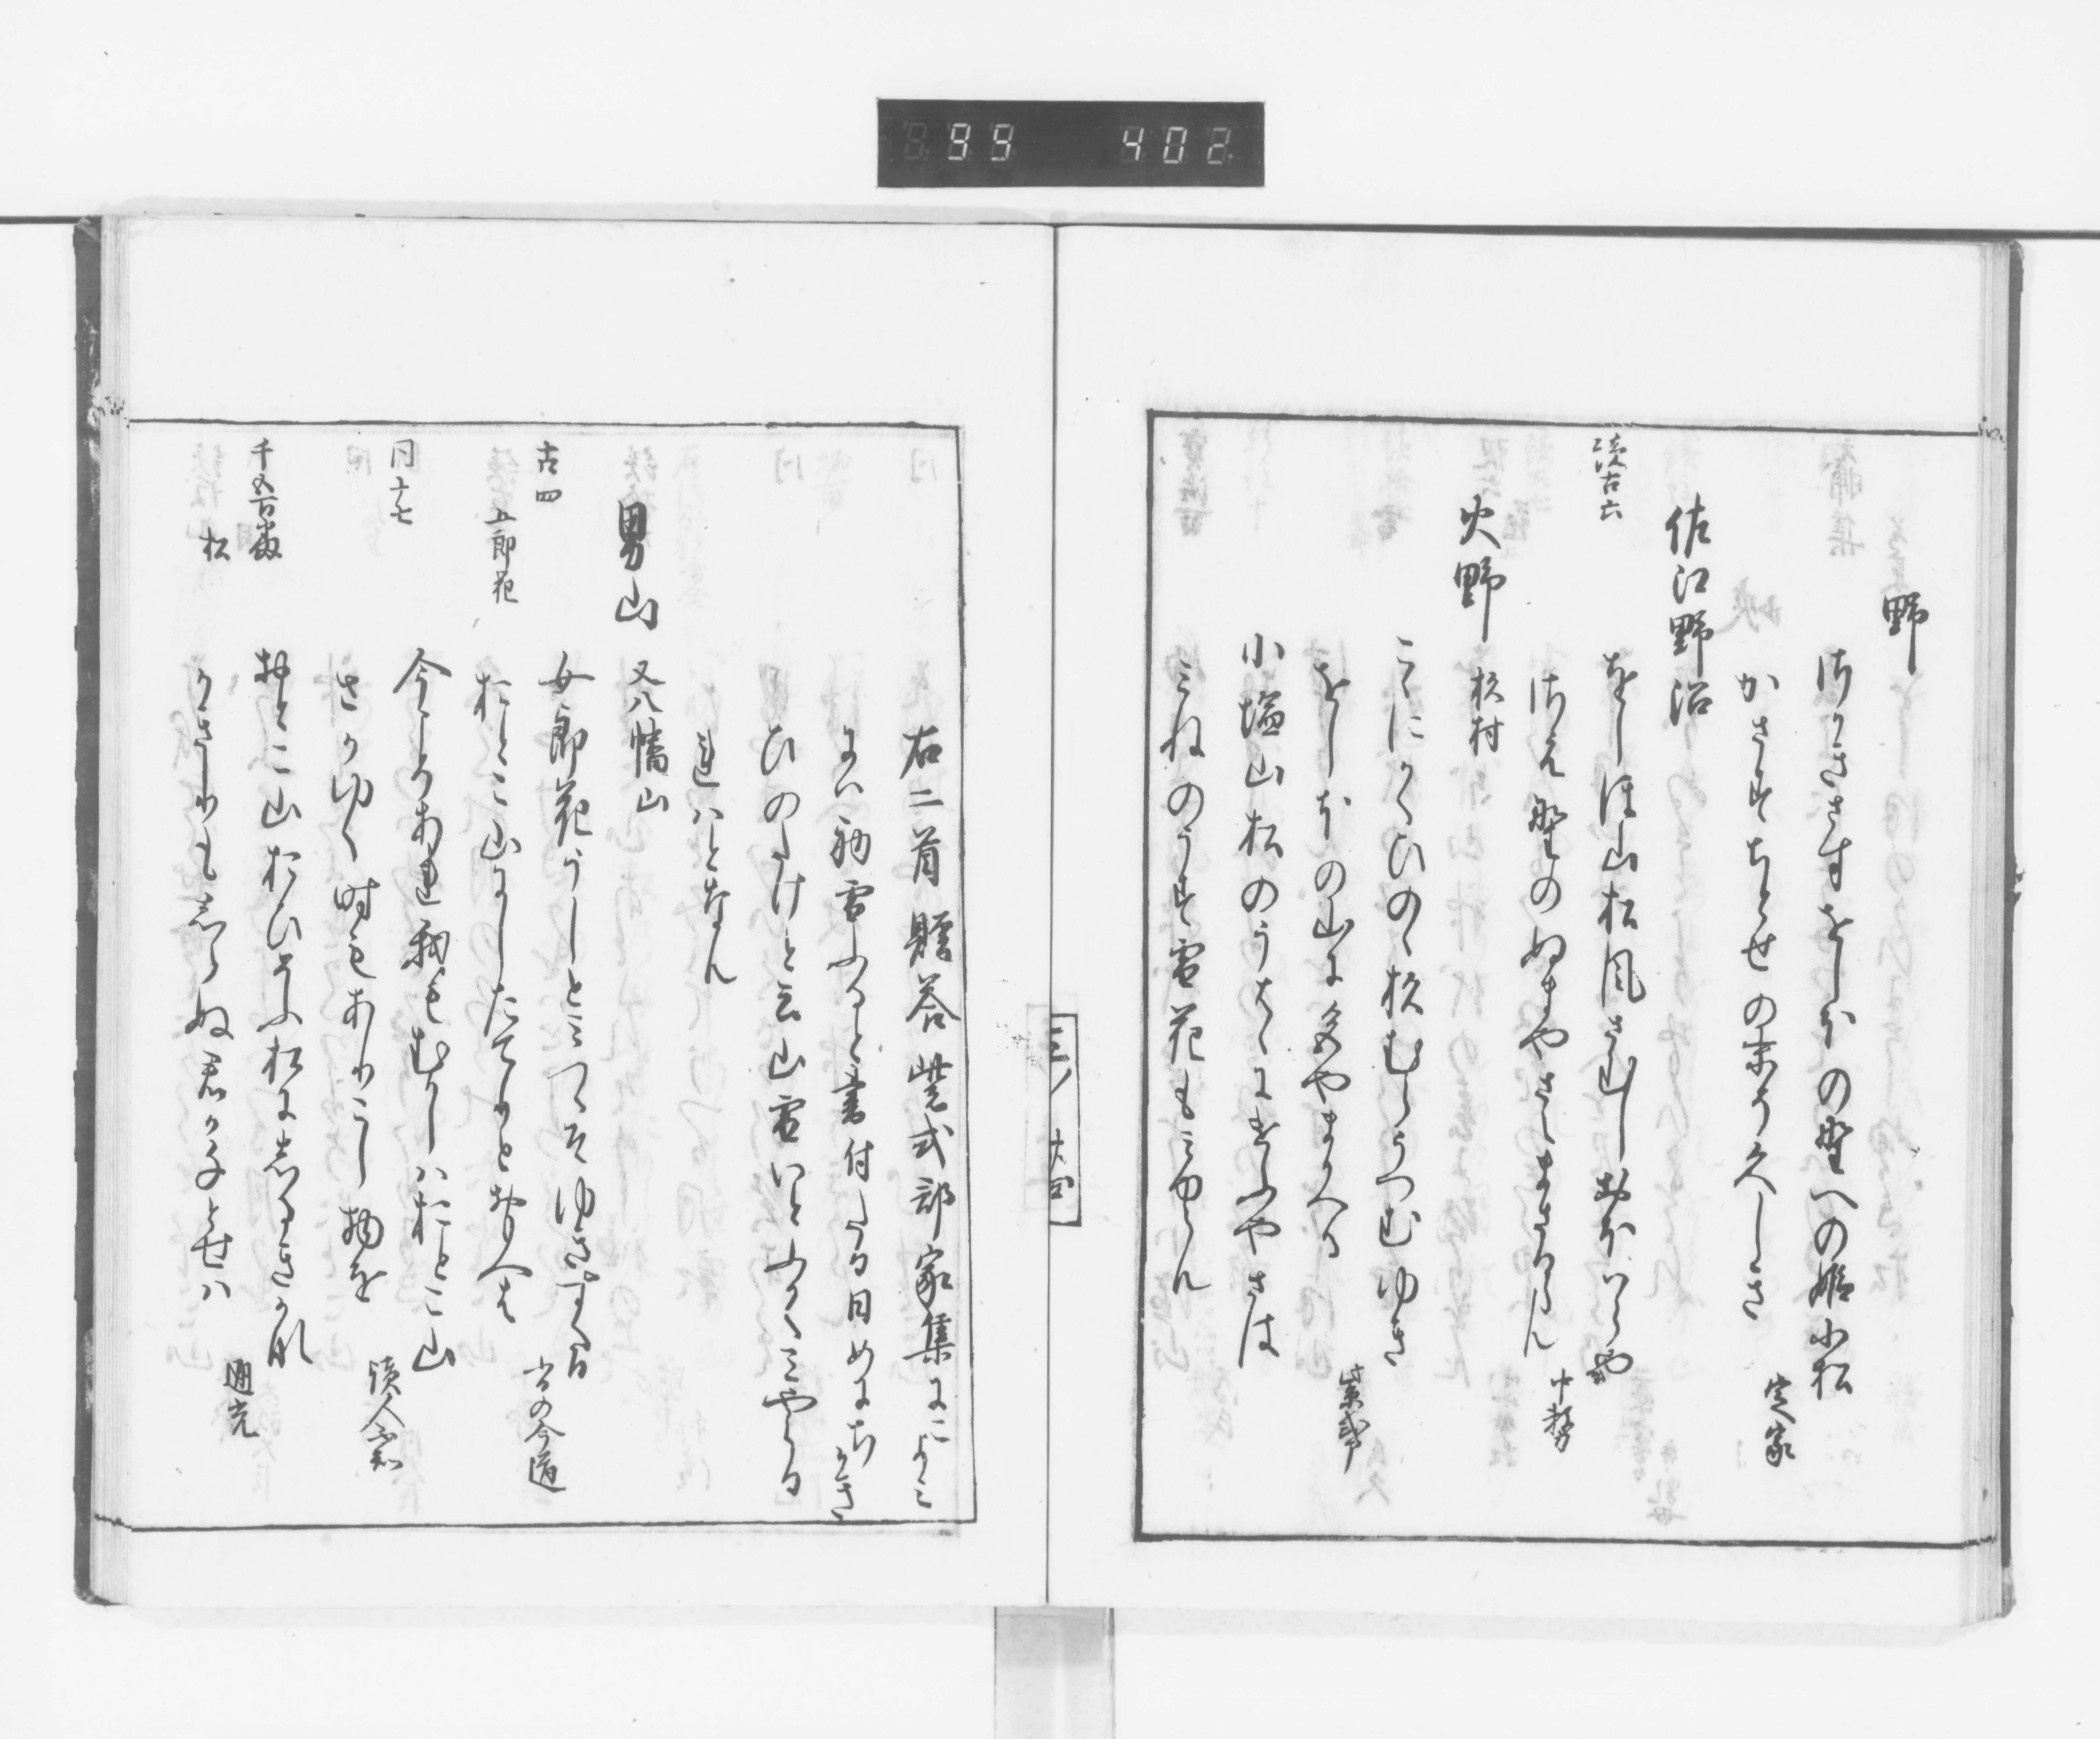 99 402
野
けふさきすをしほの野への姫小松
かさすちとせの末う久しき
定家
佐江野沼
続古六
をしほ山松風さむしおほはらや
さえ野のぬまやさえまさるらん
中務
火野 杉村
こゝにかくひのゝ杉むらうつむゆき
をしほの山に
紫式部
小塩山松のうはゝにけふやさは
みねのうす雪花とみゆらん
三ノ 大四
右二首贈答紫式部家集にこよみ
に初雪ふると書付たる日めにちかき
ひのたけと云山雪いとふかくみやら
るれはとなん
男山 又八幡山
古四
女郎花
女郎花うしとみつゝそゆきすくる
おとこ山にしたてりとおもへは
ふるの今道
同十七
今こそあれ我もむかしはおとこ山
さかゆく時もありこし物を
読人不知
千五百番
松
おとこ山おひそふ松にしるきかな
かきりもしらぬ君かちとせは
通光